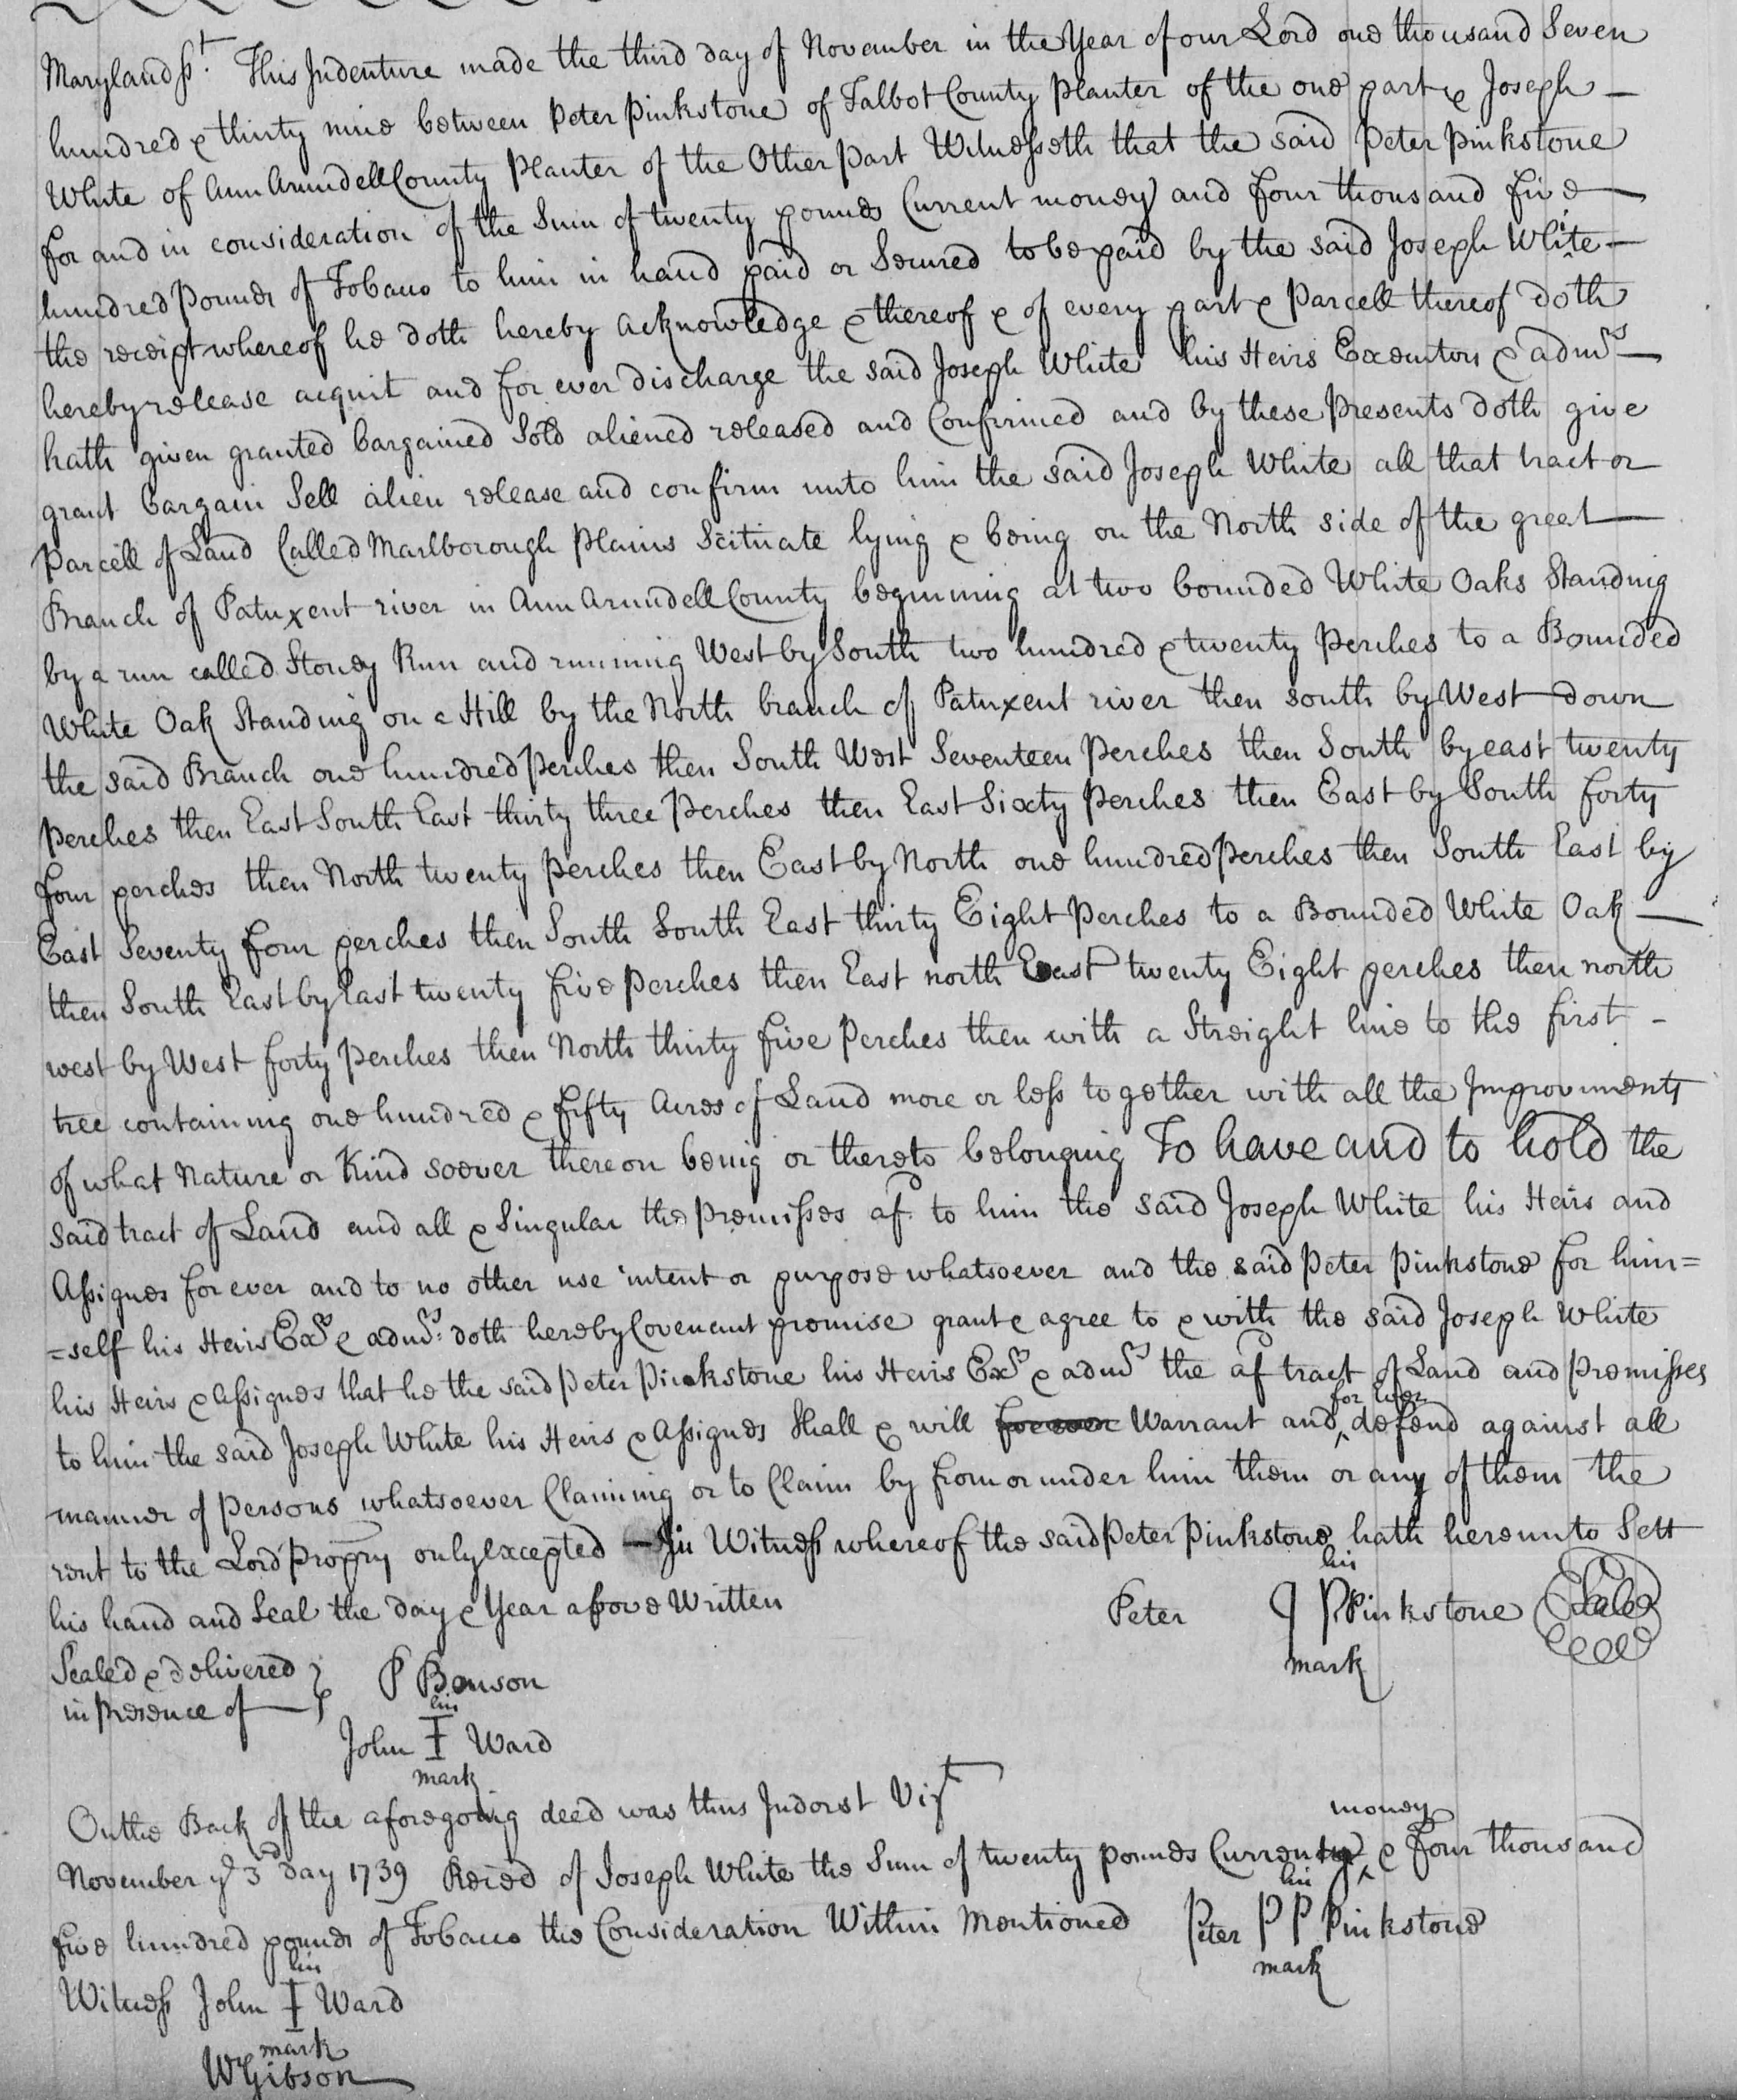 Maryland sst. This Indenture made the third day of November in the Year of our Lord one thousand Seven
hundred & thirty nine between Peter Pinkstone of Talbot County Planter of the one part & Joseph —
White of Ann Arundell County Planter of the Other Part Witnesseth that the said Peter Pinkstone
for and in consideration of the Sum of twenty pounds Current money and four thousand five —
hundred Pounds of Tobacco to him in hand paid or Secured to be paid by the said Joseph White —
the receipt whereof he doth hereby acknowledge & thereof & of every part & Parcell thereof doth
hereby release acquit and for ever discharge the said Joseph White his Heirs Executors & admrs —
hath given granted bargained Sold aliened released and Confirmed and by these Presents doth give
grant bargain Sell alien release and confirm unto him the said Joseph White all that tract or
Parcell of Land Called Marlborough Plains Scituate lying & being on the North side of the great —
Branch of Patuxent river in Ann Arundell County beginning at two bounded White Oaks Standing
by a run called Stoney Run and running West by South two hundred & twenty Perches to a Bounded
White Oak Standing on a Hill by the North branch of Patuxent river then south by West down
the said Branch one hundred Perches then South West Seventeen Perches then South by east twenty
Perches then East South East thirty three Perches then East Sixty Perches then East by South forty
four perches then North twenty Perches then East by North one hundred Perches then South East by
East Seventy four perches then South South East thirty Eight Perches to a Bounded White Oak —
then South East by East twenty five Perches then East north East twenty Eight perches then north
west by West forty Perches then North thirty five Perches then with a Streight line to the first -
tree containing one hundred & fifty Acres of Land more or less together with all the Improvments
of what Nature or Kind soever thereon being or thereto belonging To have and to hold the
said tract of Land and all & Singular the Premisses afd. to him the said Joseph White his Heirs and
Assignes for ever and to no other use intent or purpose whatsoever and the said Peter Pinkstone for him=
=self his Heirs Exrs & admrs: doth hereby Covenant promise grant & agree to & with the said Joseph White
his Heirs & Assignes that he the said Peter Pinkstone his Heirs Exrs & admrs the afd tract of Land and Premisses
to him the said Joseph White his Heirs & Assignes Shall & will for ever Warrant and for Ever defend against all
manner of Persons whatsoever Claiming or to Claim by from or under him them or any of them the
rent to the Lord Propry only excepted — In Witness whereof the said Peter Pinkstone hath hereunto Sett
his hand and Seal the day & Year above Written
Peter his P Pinkstone Seale
mark
Sealed & delivered
in Presence of —
P Benson
his
John I Ward
mark
On the Back of the aforegoing deed was thus Indorst Vizt
November ye 3d day 1739 Reced of Joseph White the Sum of twenty pounds Current money & four thousand
five hundred pounds of Tobacco the Consideration Within Mentioned Peter his P P Pinkstone
mark
his
Witness John I Ward
mark
W Gibson